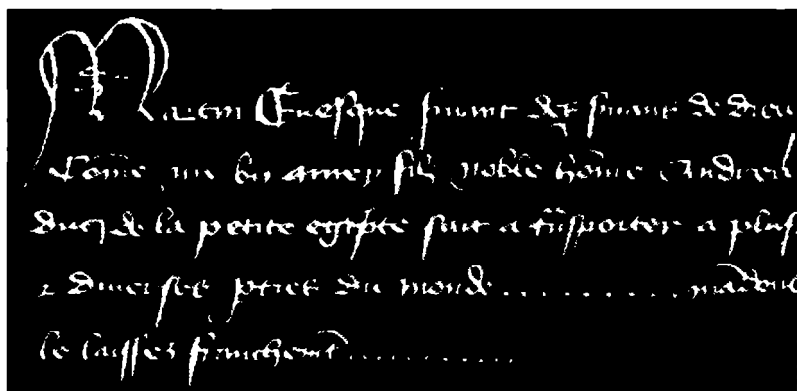 Martin Euesque seruant des seruans de dieu
Come nre bn amez filz noble home Andreu
duc de la petite egipte soit a trasporter a plus
& diuerses pties du monde .......... mandons
le laisses franchemt ..........